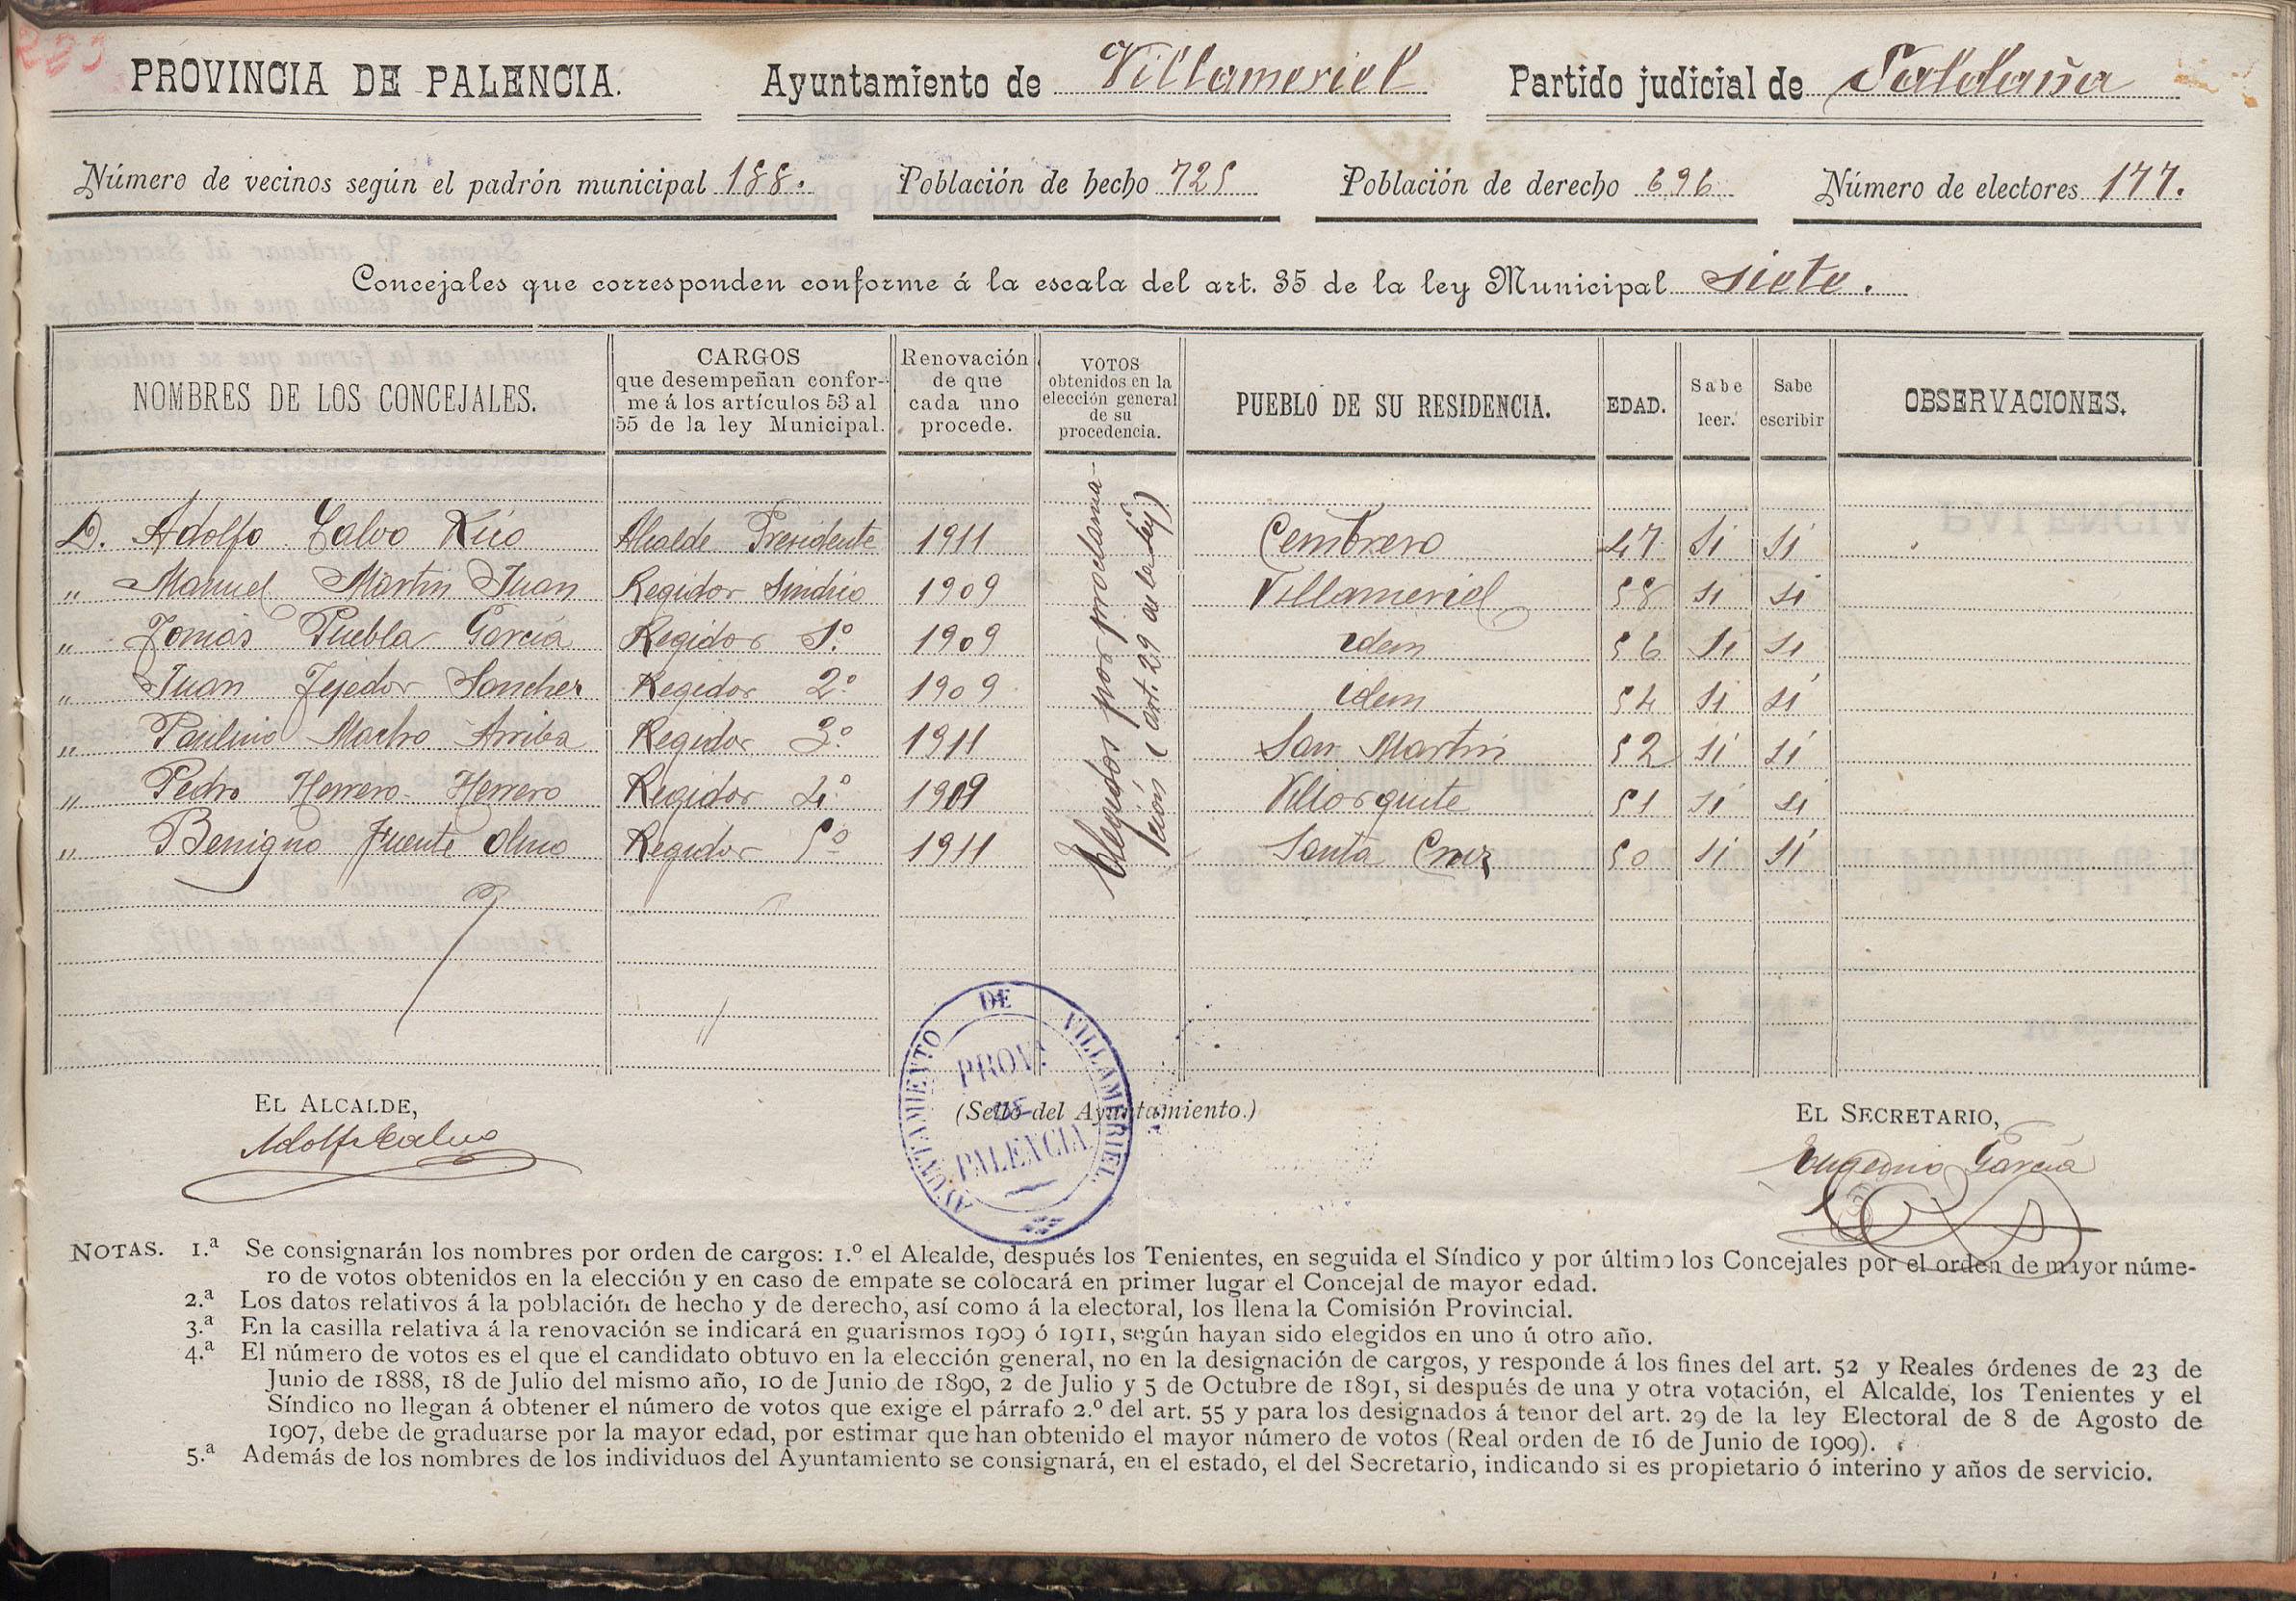 PROVINCIA DE PALENCIA. Ayuntamiento de Villameriel Partido judicial de Saldaña
Número de vecinos según el padrón municipal 188. Población de hecho 725 Población de derecho 696 Número de electores 177.
Concejales que corresponden conforme á la escala del art. 35 de la ley Municipal siete.
NOMBRES DE LOS CONCEJALES.
CARGOS
que desempeñan confor-
me á los artículos 53 al
55 de la ley Municipal.
Renovación
de que
cada uno
procede.
VOTOS
obtenidos en la
elección general
de su
procedencia.
PUEBLO DE SU RESIDENCIA.
EDAD.
Sabe
leer.
Sabe
escribir
OBSERVACIONES.
D. Adolfo Calvo Rico Alcalde Presidente 1911 Cembrero 47 Si Si
" Manuel Martin Juan Regidor Sindico 1909 Villameriel 58 si si
" Tomás Puebla García Regidor 1.º 1909 idem 56 Si si
" Juan Tejedor Sanchez Regidor 2.º 1909 idem 54 si si
" Paulino Macho Arriba Regidor 3.º 1911 San Martin 52 si si
" Pedro Herrero Herrero Regidor 4.º 1909 Villorquite 51 si si
" Benigno Fuente Olmo Regidor 5º 1911 Santa Cruz 50 si si
Elegidos por proclama-
ción (art. 29 de la ley)
EL ALCALDE,
Adolfo Calvo
(Sello del Ayuntamiento.)
AYUNTAMIENTO DE VILLAMERIEL
PROVA.
DE
PALENCIA
EL SECRETARIO,
Eugenio García
NOTAS. 1.ª Se consignarán los nombres por orden de cargos: 1.º el Alcalde, después los Tenientes, en seguida el Síndico y por último los Concejales por el orden de mayor núme-
ro de votos obtenidos en la elección y en caso de empate se colocará en primer lugar el Concejal de mayor edad.
2.ª Los datos relativos á la población de hecho y de derecho, así como á la electoral, los llena la Comisión Provincial.
3.ª En la casilla relativa á la renovación se indicará en guarismos 1909 ó 1911, según hayan sido elegidos en uno ú otro año.
4.ª El número de votos es el que el candidato obtuvo en la elección general, no en la designación de cargos, y responde á los fines del art. 52 y Reales órdenes de 23 de
Junio de 1888, 18 de Julio del mismo año, 10 de Junio de 1890, 2 de Julio y 5 de Octubre de 1891, si después de una y otra votación, el Alcalde, los Tenientes y el
Síndico no llegan á obtener el número de votos que exige el párrafo 2.º del art. 55 y para los designados á tenor del art. 29 de la ley Electoral de 8 de Agosto de
1907, debe de graduarse por la mayor edad, por estimar que han obtenido el mayor número de votos (Real orden de 16 de Junio de 1909).
5.ª Además de los nombres de los individuos del Ayuntamiento se consignará, en el estado, el del Secretario, indicando si es propietario ó interino y años de servicio.